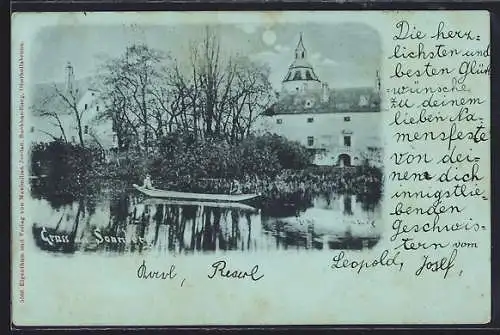 Die herz-
lichsten und
besten Glück
wünsche
zu deinem
lieben Na-
mensfeste
von dei-
nen dich
innigstlie-
benden
Geschwis-
tern vom
Leopold, Josef,
Reserl
Gruss aus
5566 Eigenthum und Verlag von Maximilian Jordan, Buchhandlung, Oberhollabrunn.